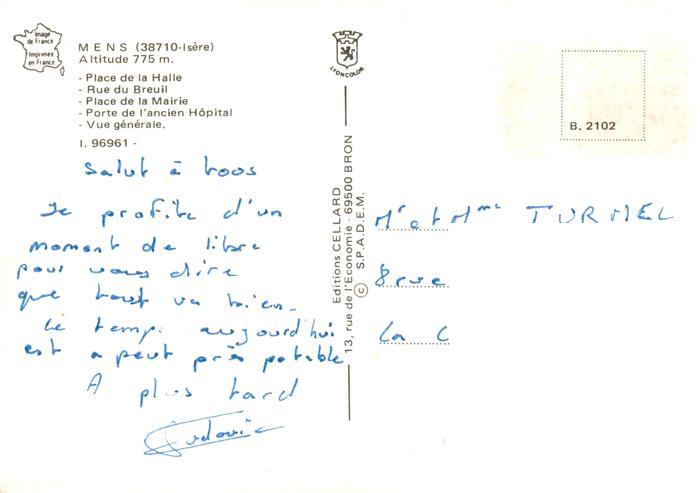 Image
de France
Imprimée
en France
MENS (38710-Isère)
Altitude 775 m.
- Place de la Halle
- Rue du Breuil
- Place de la Mairie
- Porte de l'ancien Hôpital
- Vue générale.
I. 96961 -
Salut à tous
Je profite d'un
moment de libre
pour vous dire
que tout va bien.
Le temp. aujourd'hui
est a peut près potable
A plus tard
Ludovic
LYONCOLOR
Editions CELLARD
13, rue de l'Economie - 69500 BRON
© S.P.A.D.E.M.
B. 2102
Mr et Mme TURMEL
8 rue
La C